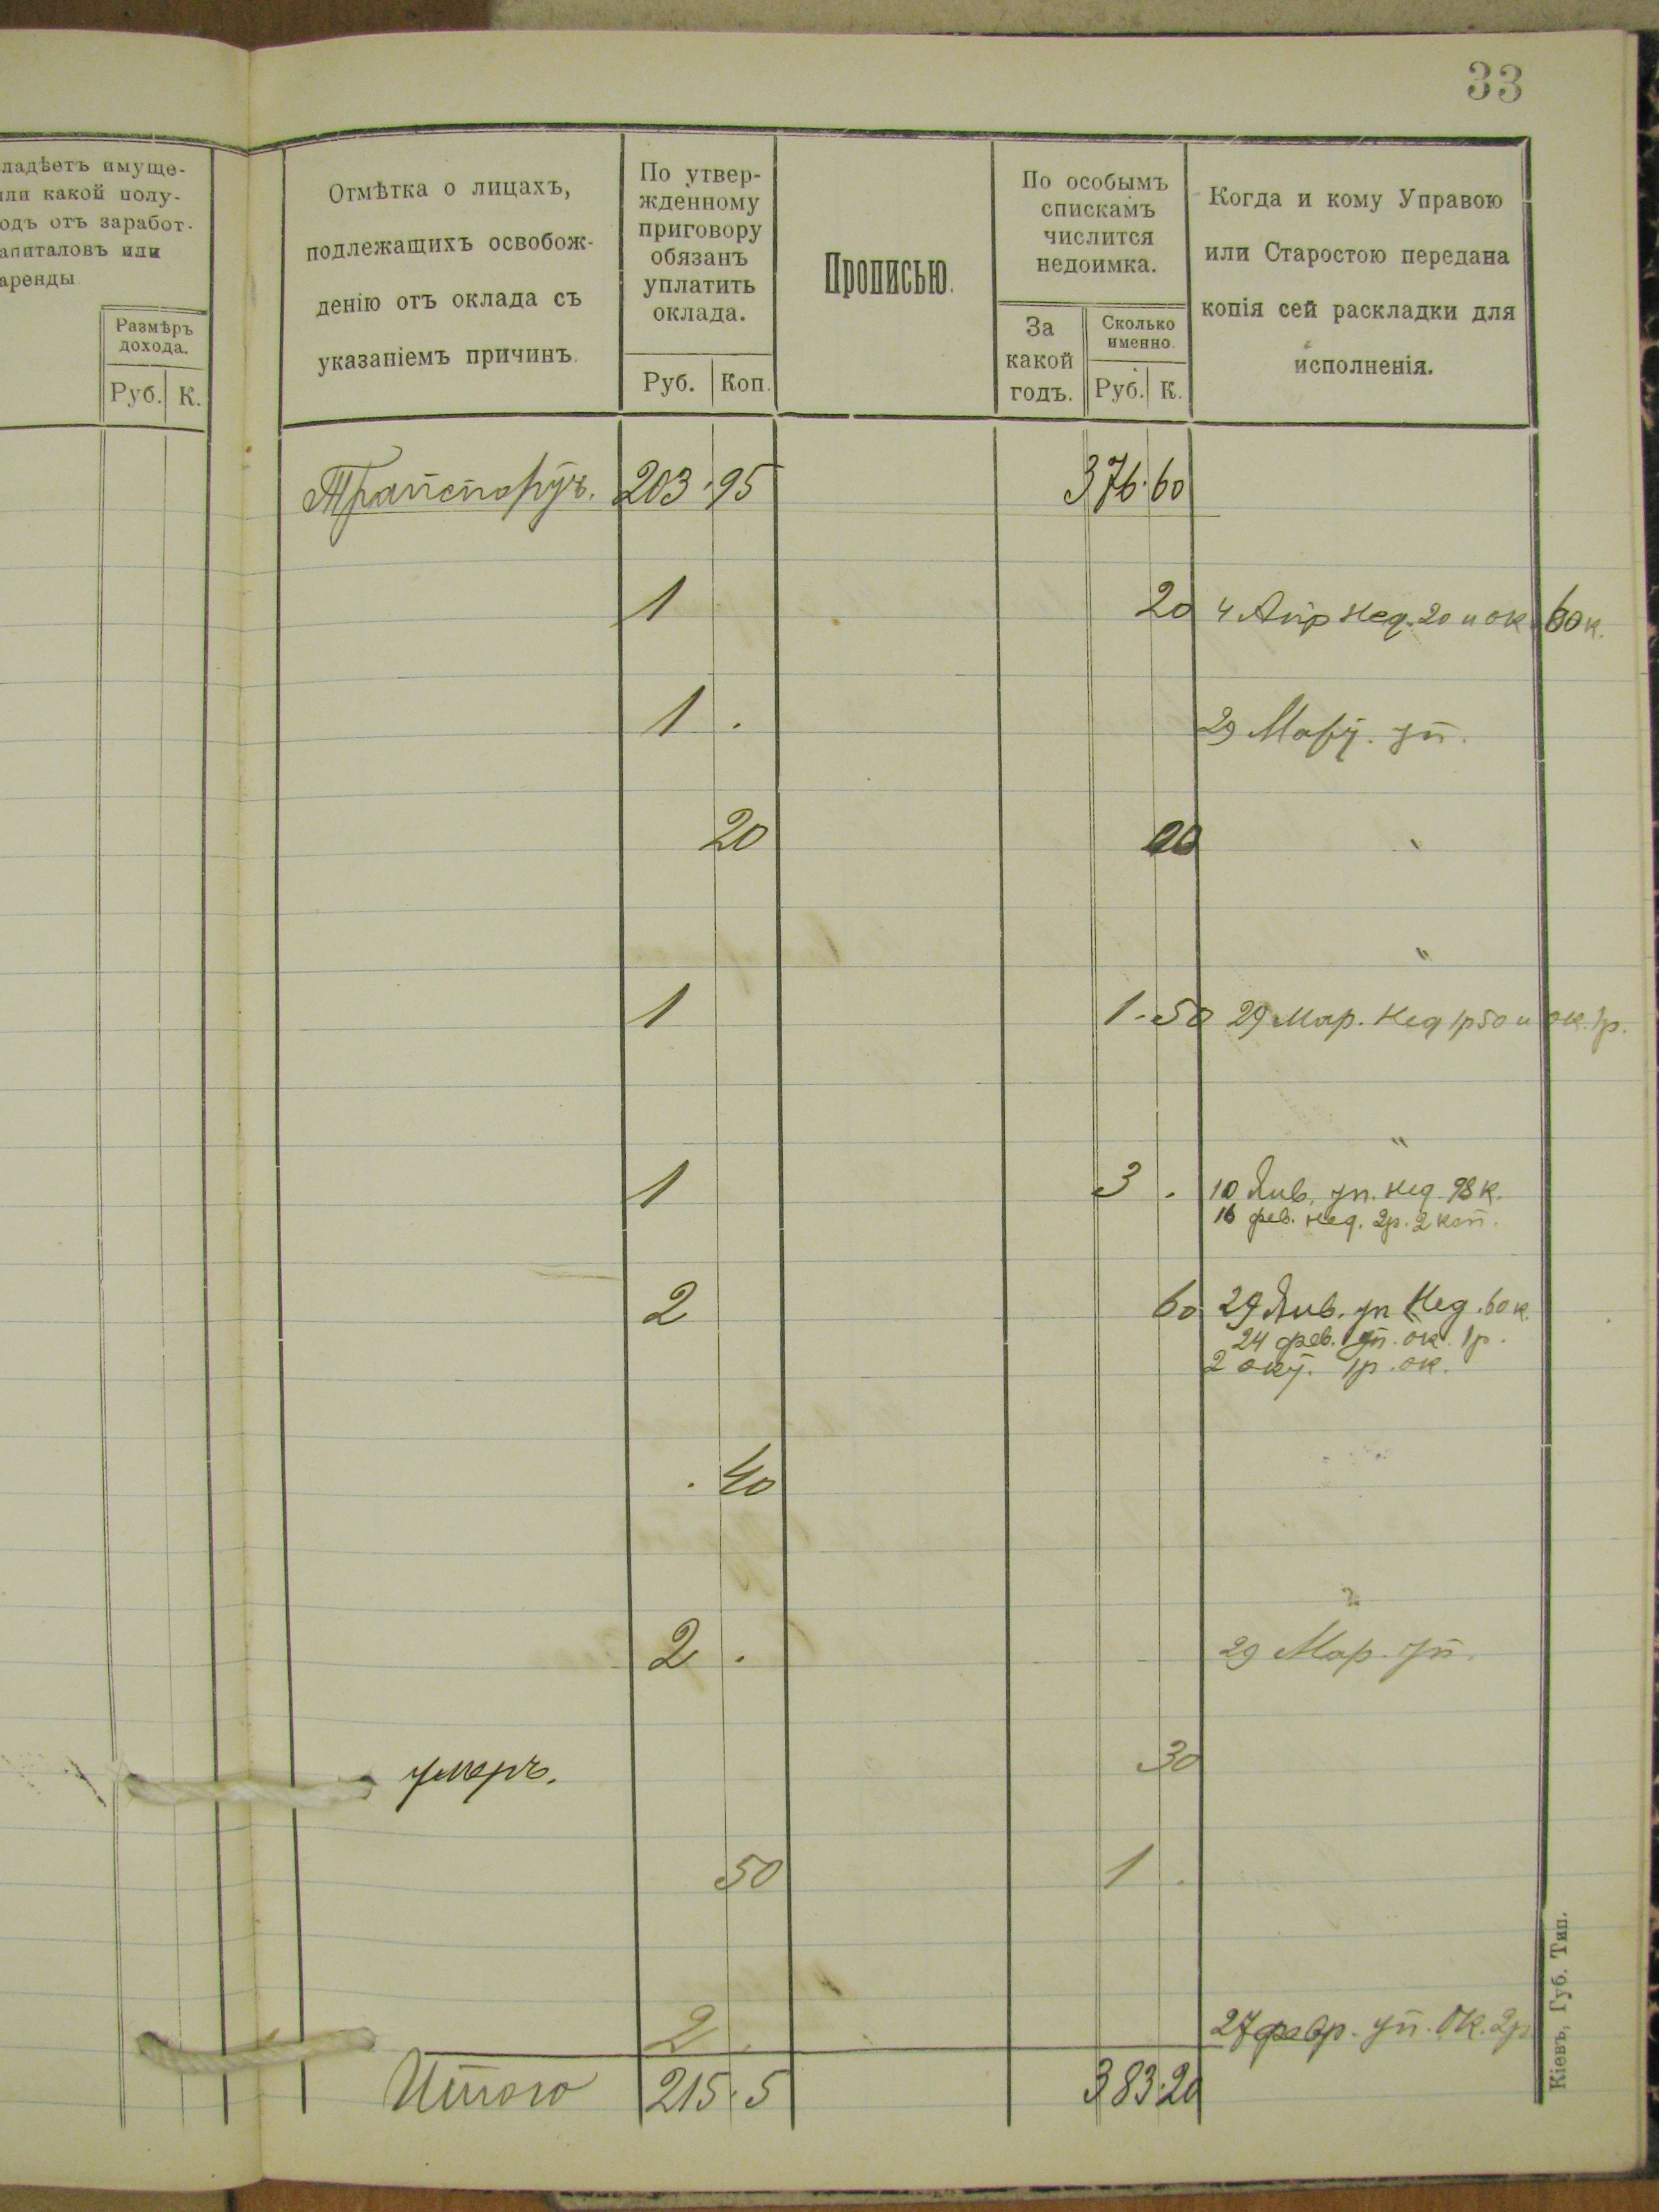 33
ладѣетъ имуще-
или какой полу-
одъ отъ заработ-
апиталовъ или
аренды
Размѣръ
дохода.
Руб. К.
Отмѣтка о лицахъ,
подлежащихъ освобож-
денію отъ оклада съ
указаніемъ причинъ.
По утвер-
жденному
приговору
обязанъ
уплатить
оклада.
Руб. Коп.
Прописью.
По особымъ
спискамъ
числится
недоимка.
За
какой
годъ.
Сколько
именно.
Руб. К.
Когда и кому Управою
или Старостою передана
копія сей раскладки для
исполненія.
Транспортъ. 203.95 376.60
1 20 4 Апр нед. 20 и ок. 60 к.
1 . 29 Март. уп.
20
1 1.50 29 Мар. нед 1р 50 и ок. 1р.
1 3 . 10 Янв. уп. нед. 98 к.
16 фев. нед. 2р. 2 коп.
2 60 29 Янв. уп нед. 60 к.
24 фев. уп. ок. 1р.
2 окт. 1р. ок.
. 40
2 . 29 Мар. уп.
умеръ. 30
50 1 .
2 . 27 февр. уп. ок. 2р
Итого 215.5 383.20
Кіевъ, Губ. Тип.